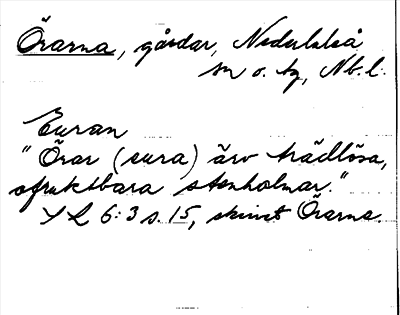 Örarna, gårdar, Nederluleå
sn o. tg, Nb. l.
Euran
"Örar (eura) äro trädlösa,
ofruktbara stenholmar."
SL 6:3 s. 15, skrivet Örarna.